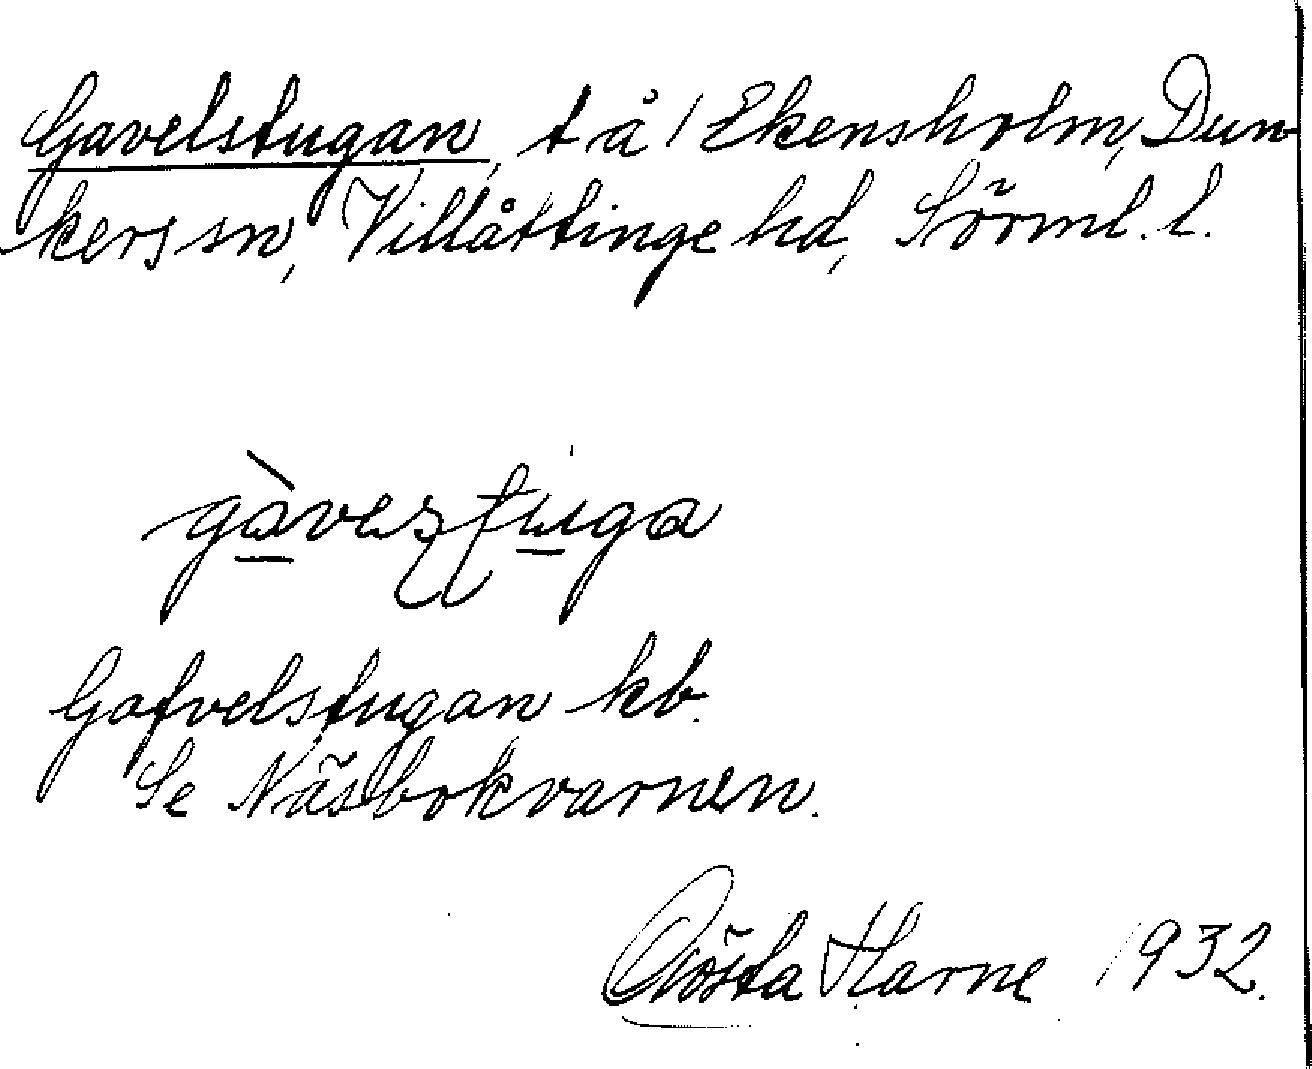 Gavelstugan, t å / Ekensholm, Dun-
kers sn, Villåttinge hd, Sörml. l.
gàvesstuga
Gafvelstugan kb.
Se Näsbokvarnen.
Gösta Harne 1932.